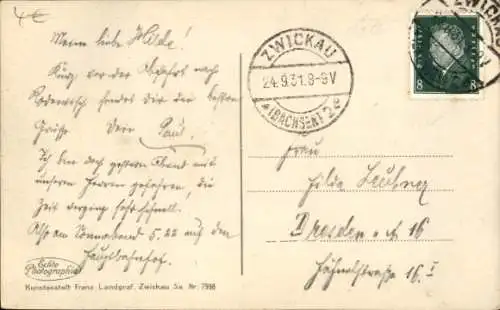 4 €
Meine liebe Hilde!
Kurz vor der Abfahrt nach
Rodewisch sendet dir die besten
Grüsse Dein Paul.
Ich bin doch gestern Abend mit
unseren Herren gefahren, die
Zeit verging sehr schnell.
Also am Sonnabend 5,22 auf dem
Hauptbahnhof.
Echte
Photographie
Kunstanstalt Franz Landgraf, Zwickau Sa. Nr. 7998
ZWICKAU
24.9.31.8-9V
(SACHSEN) 2
8 8
Frau
Hilde
Dresden - A 16
16 I